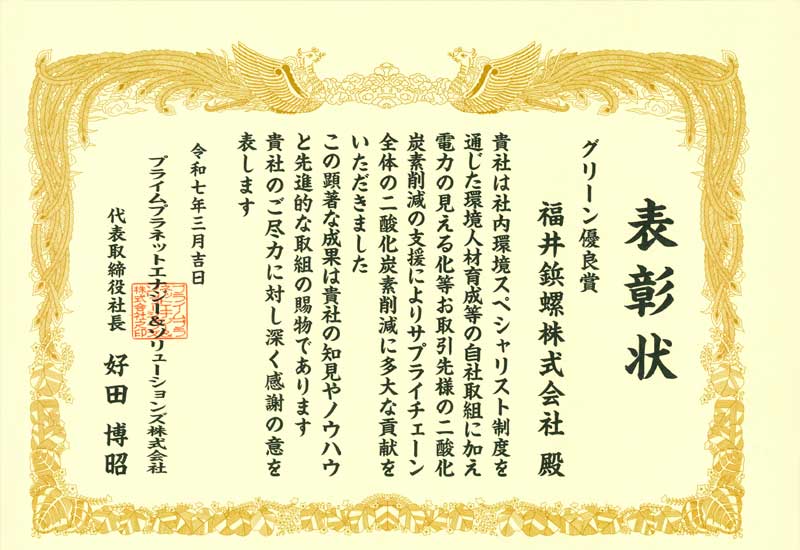 表彰状
グリーン優良賞
福井鋲螺株式会社 殿
貴社は社内環境スペシャリスト制度を
通じた環境人材育成等の自社取組に加え
電力の見える化等お取引先様の二酸化
炭素削減の支援によりサプライチェーン
全体の二酸化炭素削減に多大な貢献を
いただきました
この顕著な成果は貴社の知見やノウハウ
と先進的な取組の賜物であります
貴社のご尽力に対し深く感謝の意を
表します
令和七年三月吉日
プライムプラネットエナジー&ソリューションズ株式会社
代表取締役社長 好田 博昭